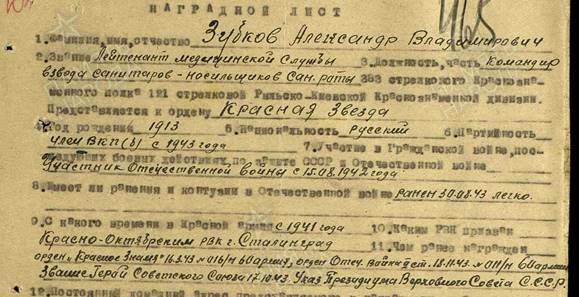 НАГРАДНОЙ ЛИСТ
1.Фамилия,имя,отчество Зубков Александр Владимирович
2.Звание Лейтенант медицинской службы 3.Должность,часть Командир
взвода санитаров-носильщиков Сан.роты 383 стрелкового Краснозна-
менного полка 121 стрелковой Рыльско-Киевской Краснознаменной дивизии.
Представляется к ордену Красная Звезда
4.Год рождения 1913 5.Национальность русский 6.Партийность
член ВКП(б) с 1943 года 7.Участие в Гражданской войне, пос-
ледующих боевых действиях по защите СССР и Отечественной войне
Участник Отечественной войны с 15.08.1942 года
8.Имеет ли ранения и контузии в Отечественной войне ранен 30.08.43 легко.
9.С какого времени в Красной армии с 1941 года 10.Каким РВК призван
Красно-Октябрьским РВК г. Сталинград 11.Чем ранее награжден
орден "Красное Знамя" 16.9.43 № 016/н 60 Армия, орден Отеч. Войны 18.10.43 № 60 Армии
Звание Герой Советского Союза 17.10.43. Указ Президиума Верховного Совета С.С.С.Р.
12.Постоянный домашний адрес